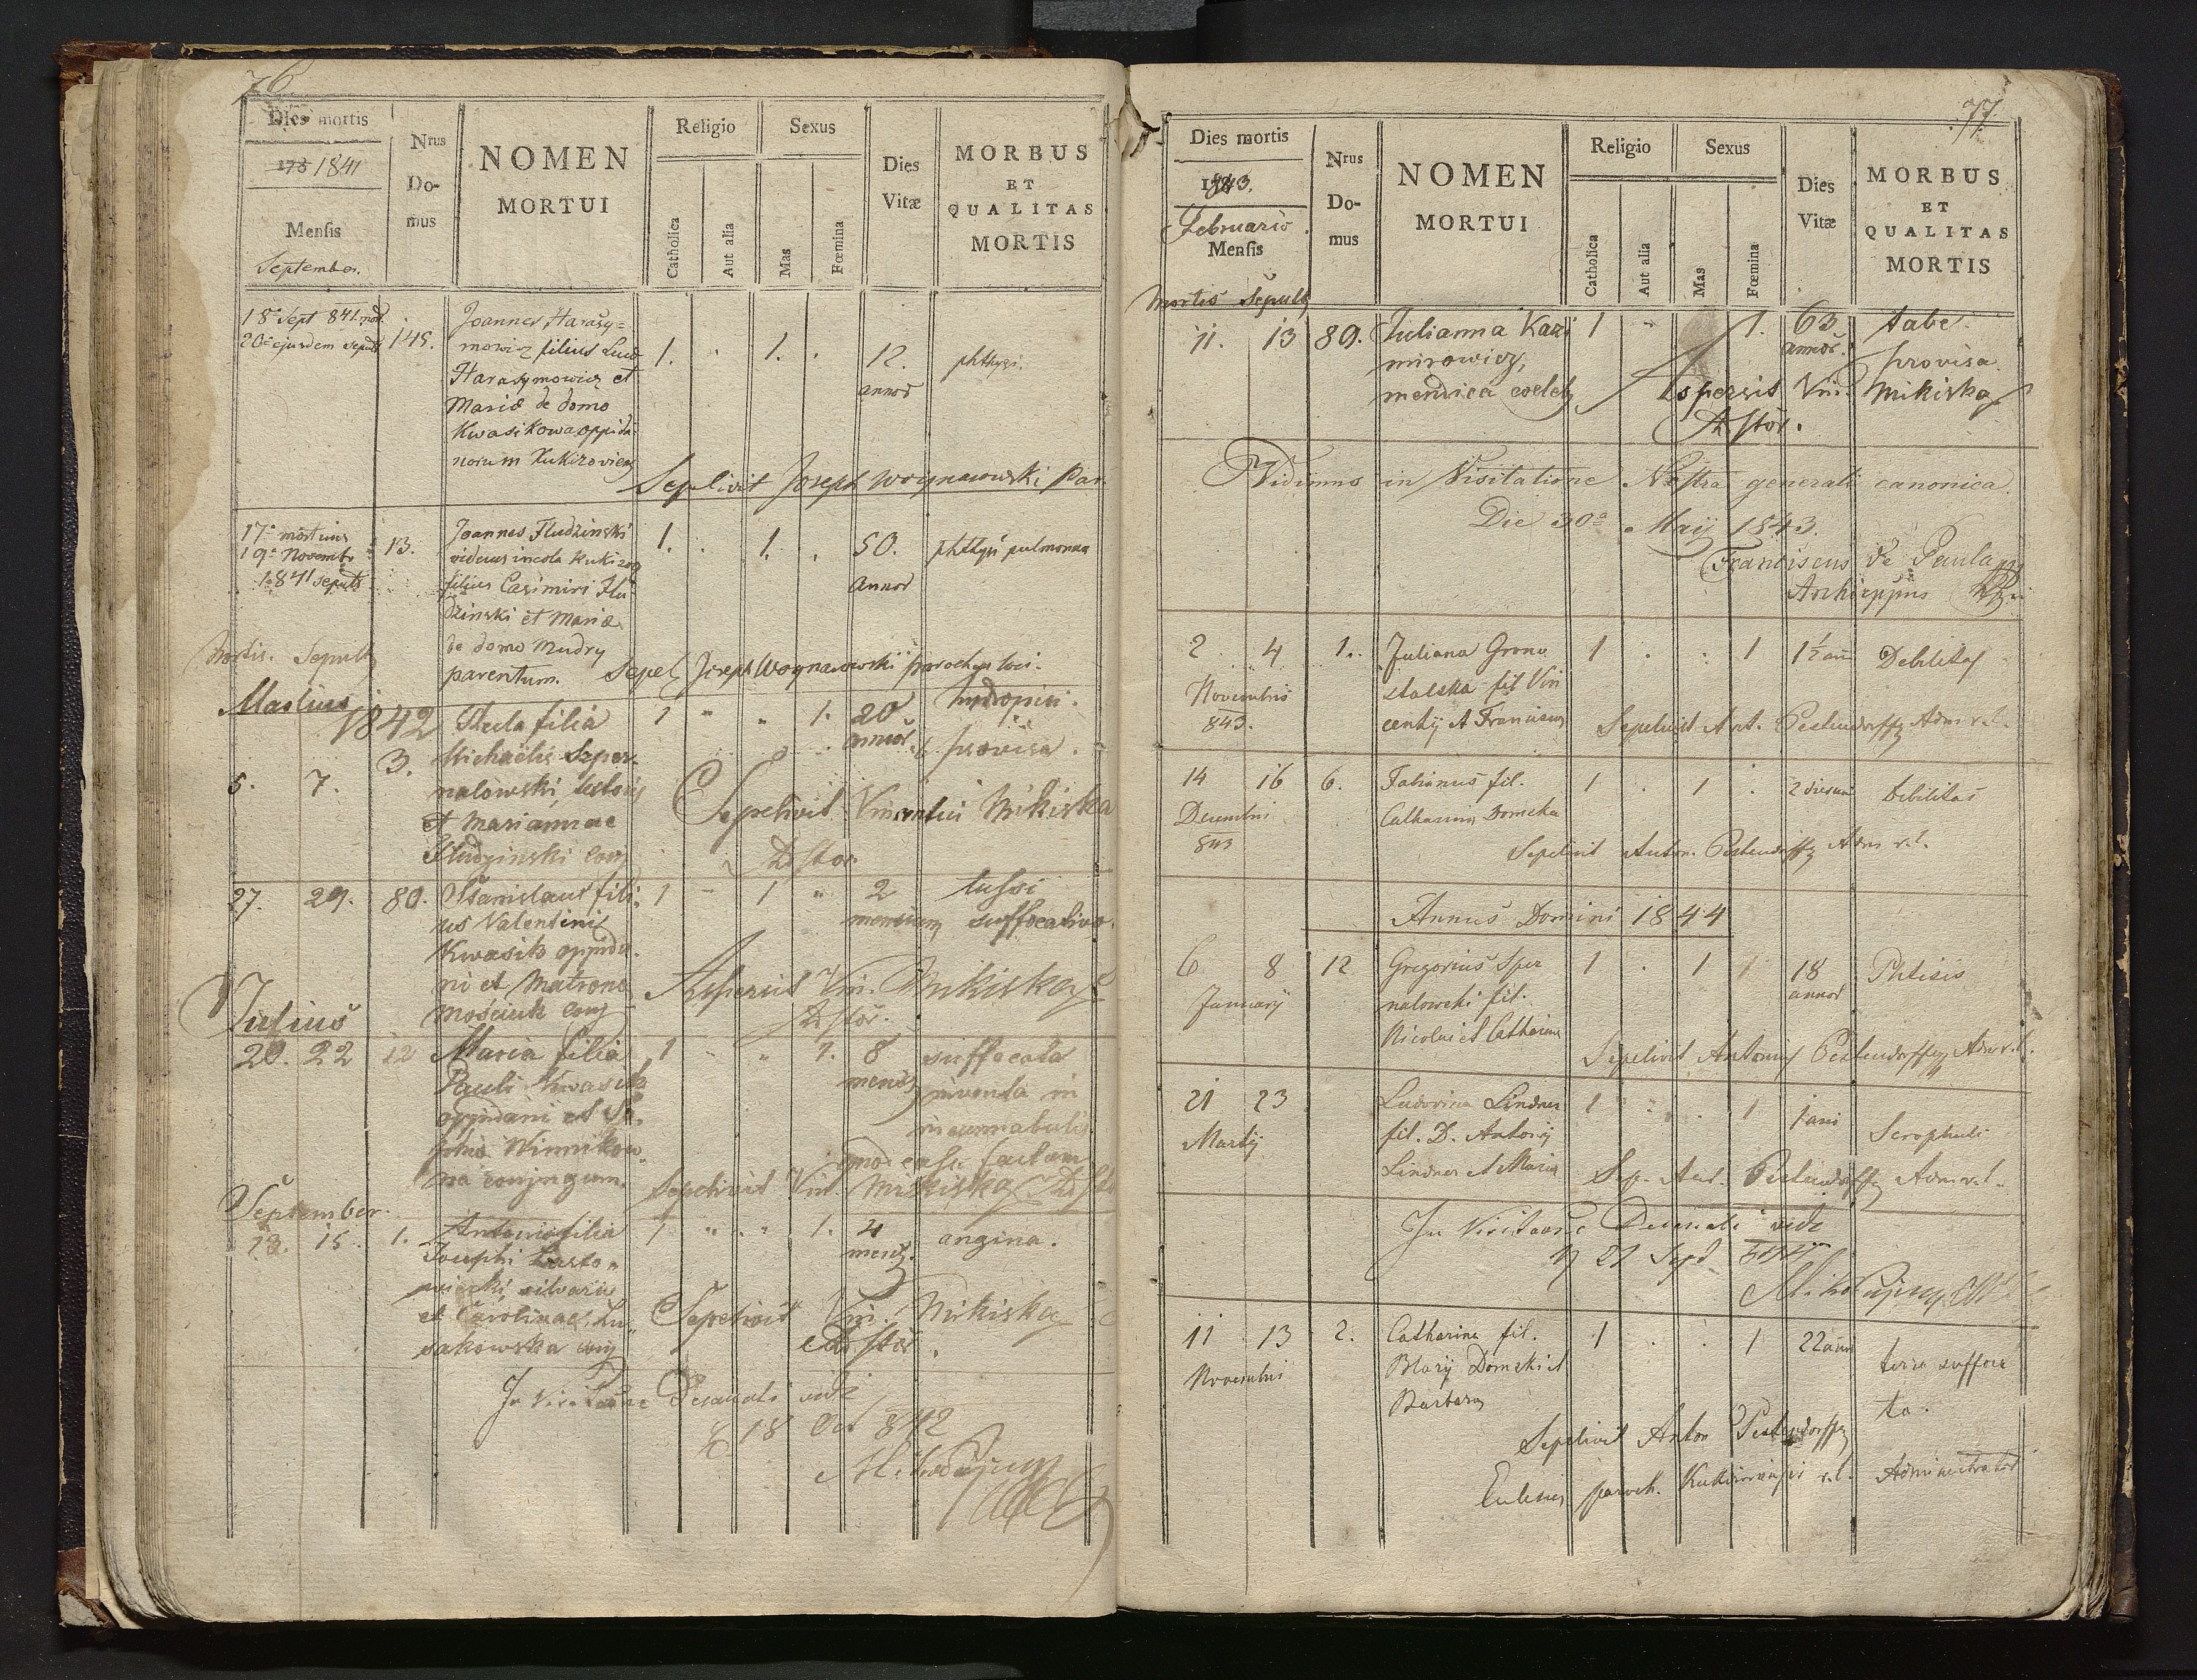 76.
Dies mortis
1841
Mensis
September.
Nrus
Do-
mus
NOMEN
MORTUI
Religio
Catholica
Aut alia
Sexus
Mas
Fœmina
Dies
Vitæ
MORBUS
ET
QUALITAS
MORTIS
18ª Sept 841 mort
20ª ejusdem sepult
145.
Joannes Harasy=
mowicz filius Lud
Harasymowicz et
Mariæ de domo
Kwasikowa oppida
norum Kukizoviens
1. 1. 12.
annor
phthysi.
Seplivit Joseph Woynarowski Par.
17ª mortuus
19ª Novembr
1841 sepult
13.
Joannes Fludzinski
viduus incola Kukizov
filius Casimiri Flu
dzinski et Mariæ
de domo Mudry
parentum.
1. 1. 50.
Annor
phthysi pulmonea
Sepel Joseph Woynarowski parochus loci.
Mortis. Sepult
Martius
1842
5. 7. 3.
Thecla filia
Michaëlis Szper-
nalowski,
et Mariannae
Fludzinski conj
1 " " 1. 20
annor.
hydropisi.
provisa.
Sepelivit Vincentius Mikiska
27. 29. 80.
Stanislaus fili-
us Valentini
Kwasik oppida-
ni et Matrona
Mościuk conj
1 " 1 " 2
mensium
tussi
suffocativa.
Aspersit Vin. Mikiska
Julius
20. 22 12
Maria filia
Pauli Kwasik
oppidani et So-
phia Winnikow-
na conjugum.
1 " " 1. 8
mens
suffocata
inventa in
incunnabulis.
quod casu factum
Sepelivit Vin. Mikiska
September.
13. 15. 1.
Antonia filia
Josephi
silvarii
et Carolinae Lu-
sakowska conj
1 " " 1. 4
mens.
angina.
Sepelivit Vin. Mikiska
In Decanali vidi
18 Oct 842
77.
Dies mortis
1843.
Februario
Mensis
Mortis Sepult
Nrus
Do-
mus
NOMEN
MORTUI
Religio
Catholica
Aut alia
Sexus
Mas
Fœmina
Dies
Vitæ
MORBUS
ET
QUALITAS
MORTIS
11. 13 89.
Julianna Kazi
mirowicz,
mendica coeleb
1 " 1. 63
annor.
tabe
provisa
Aspersit Vin. Mikiska
Vidimus in Visitatione Nostra generali canonica
Die 30ª Maij 1843.
Franciscus de Paula
Archieppus
2 4 1.
Novembris
843.
Juliana Grono
stalska fil Vin
centij et Francisca
1 . . 1 1½ an
Debilitas
Sepelivit Ant. Pestendorffy Adm r. l.
14 16 6.
Decembris
843
Fabianus fil.
Catharina Domska
1 . 1 . 2 dierum
debilitas
Sepelivit Anton. Pestendorffy Adm r. l.
Annus Domini 1844
6 8 12
Januarij
Gregorius Szper
nalowski fil.
Nicolai et Catharina
1 . 1 18
annor
Phtisis
Sepelivit Antonius Pestendorffy Adm r. l.
21 23
Martij
Ludovica Lindner
fil. D. Antonij
Lindner et Maria
1 . . 1 1 ani
Scrophuli
Sep. Ant. Pestendorffy Adm r. l.
In Decanali vidi
21
11 13 2.
Novembris
Catharina fil.
Blasij Domski et
Barbara
1 . . 1 22 ann
terra suffoca
ta.
Sepelivit Anton Pestendorffy
Ecclesiae paroch. Kukizoviensis r. l. Administrator